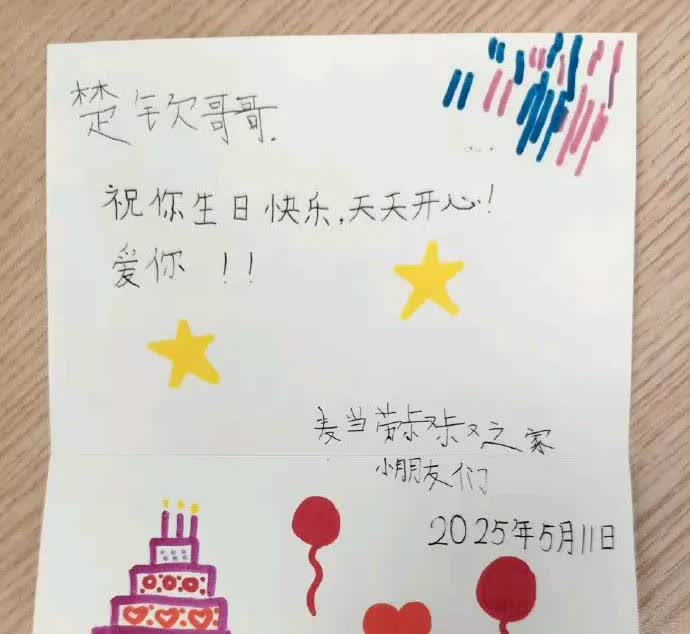 楚钦哥哥.
祝你生日快乐,天天开心!
爱你!!
麦当劳叔叔之家
小朋友们
2025年5月11日